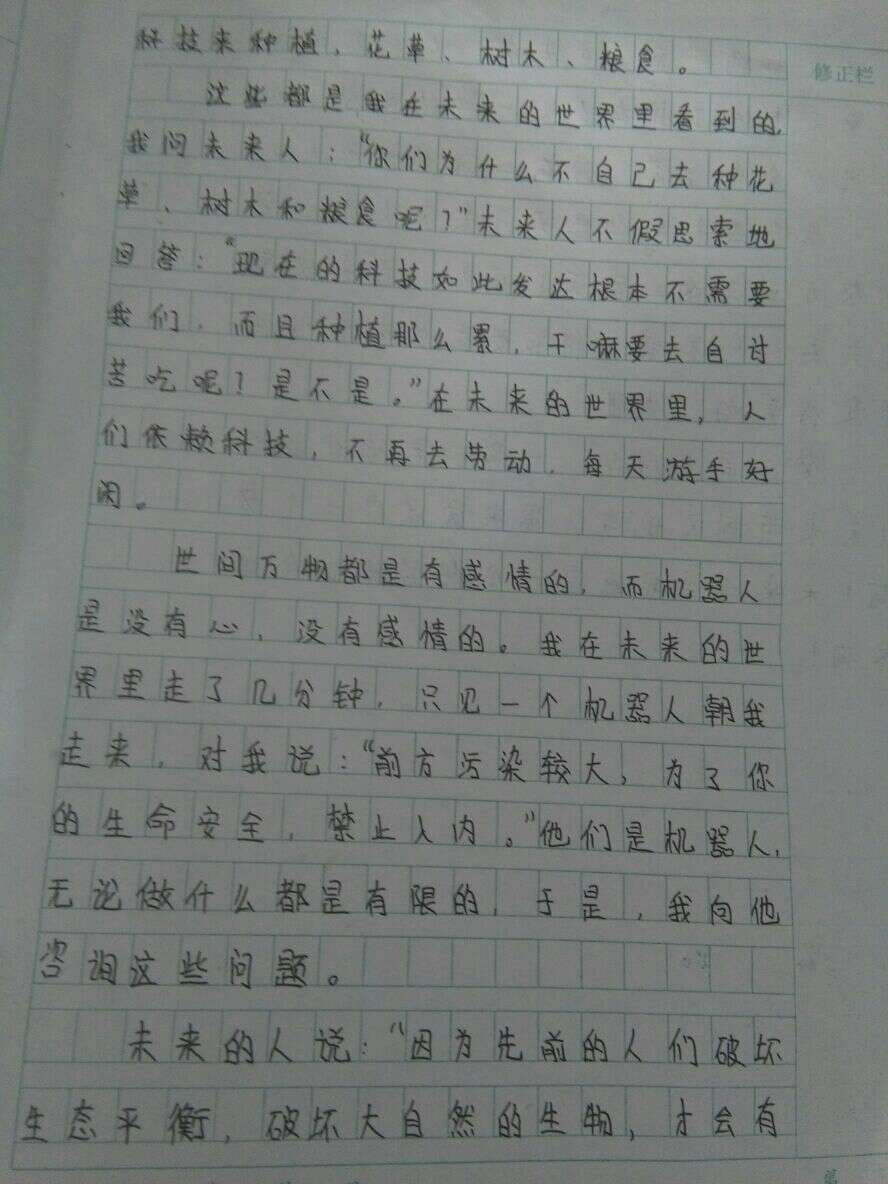 科技来种植，花草、树木、粮食。
修正栏
这些都是我在未来的世界里看到的，
我问未来人：“你们为什么不自己去种花
草、树木和粮食呢？”未来人不假思索地
回答：“现在的科技如此发达根本不需要
我们，而且种植那么累，干嘛要去自讨
苦吃呢？是不是。”在未来的世界里，人
们依赖科技，不再去劳动，每天游手好
闲。
世间万物都是有感情的，而机器人
是没有心，没有感情的。我在未来的世
界里走了几分钟，只见一个机器人朝我
走来，对我说：“前方污染较大，为了你
的生命安全，禁止入内。”他们是机器人，
无论做什么都是有限的，于是，我向他
咨询这些问题。
未来的人说：“因为先前的人们破坏
生态平衡，破坏大自然的生物，才会有
第